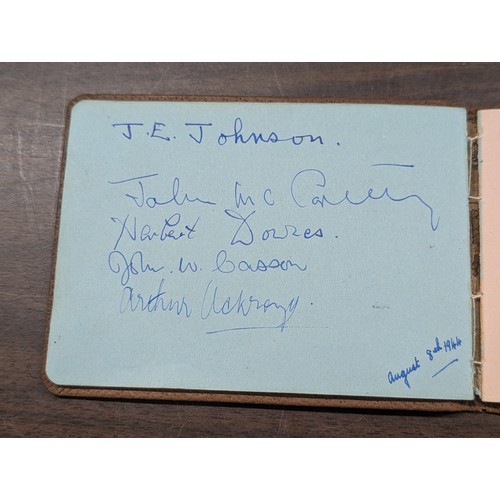 J.E. Johnson.
John McCarthy
Herbert Downes.
John. W. Casson
Arthur Ackroyd.
August 8th 1944